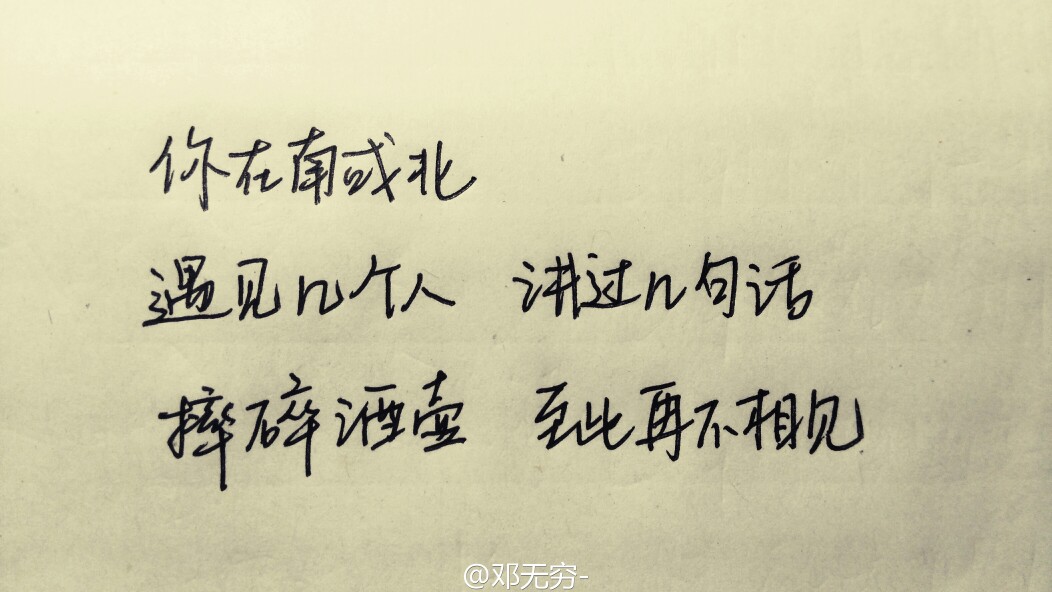 你在南或北
遇见几个人 讲过几句话
摔碎酒壶 至此再不相见
@邓无穷-